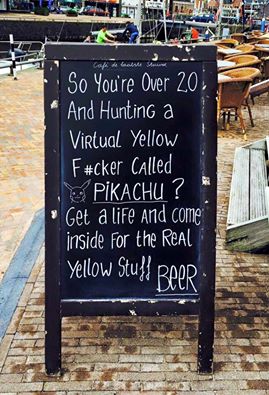 Café de laatste Stuiver
So You're Over 20
And Hunting a
Virtual Yellow
F#cker Called
PiKACHU?
Get a life And come
inside For the Real
Yellow Stuff
BEER